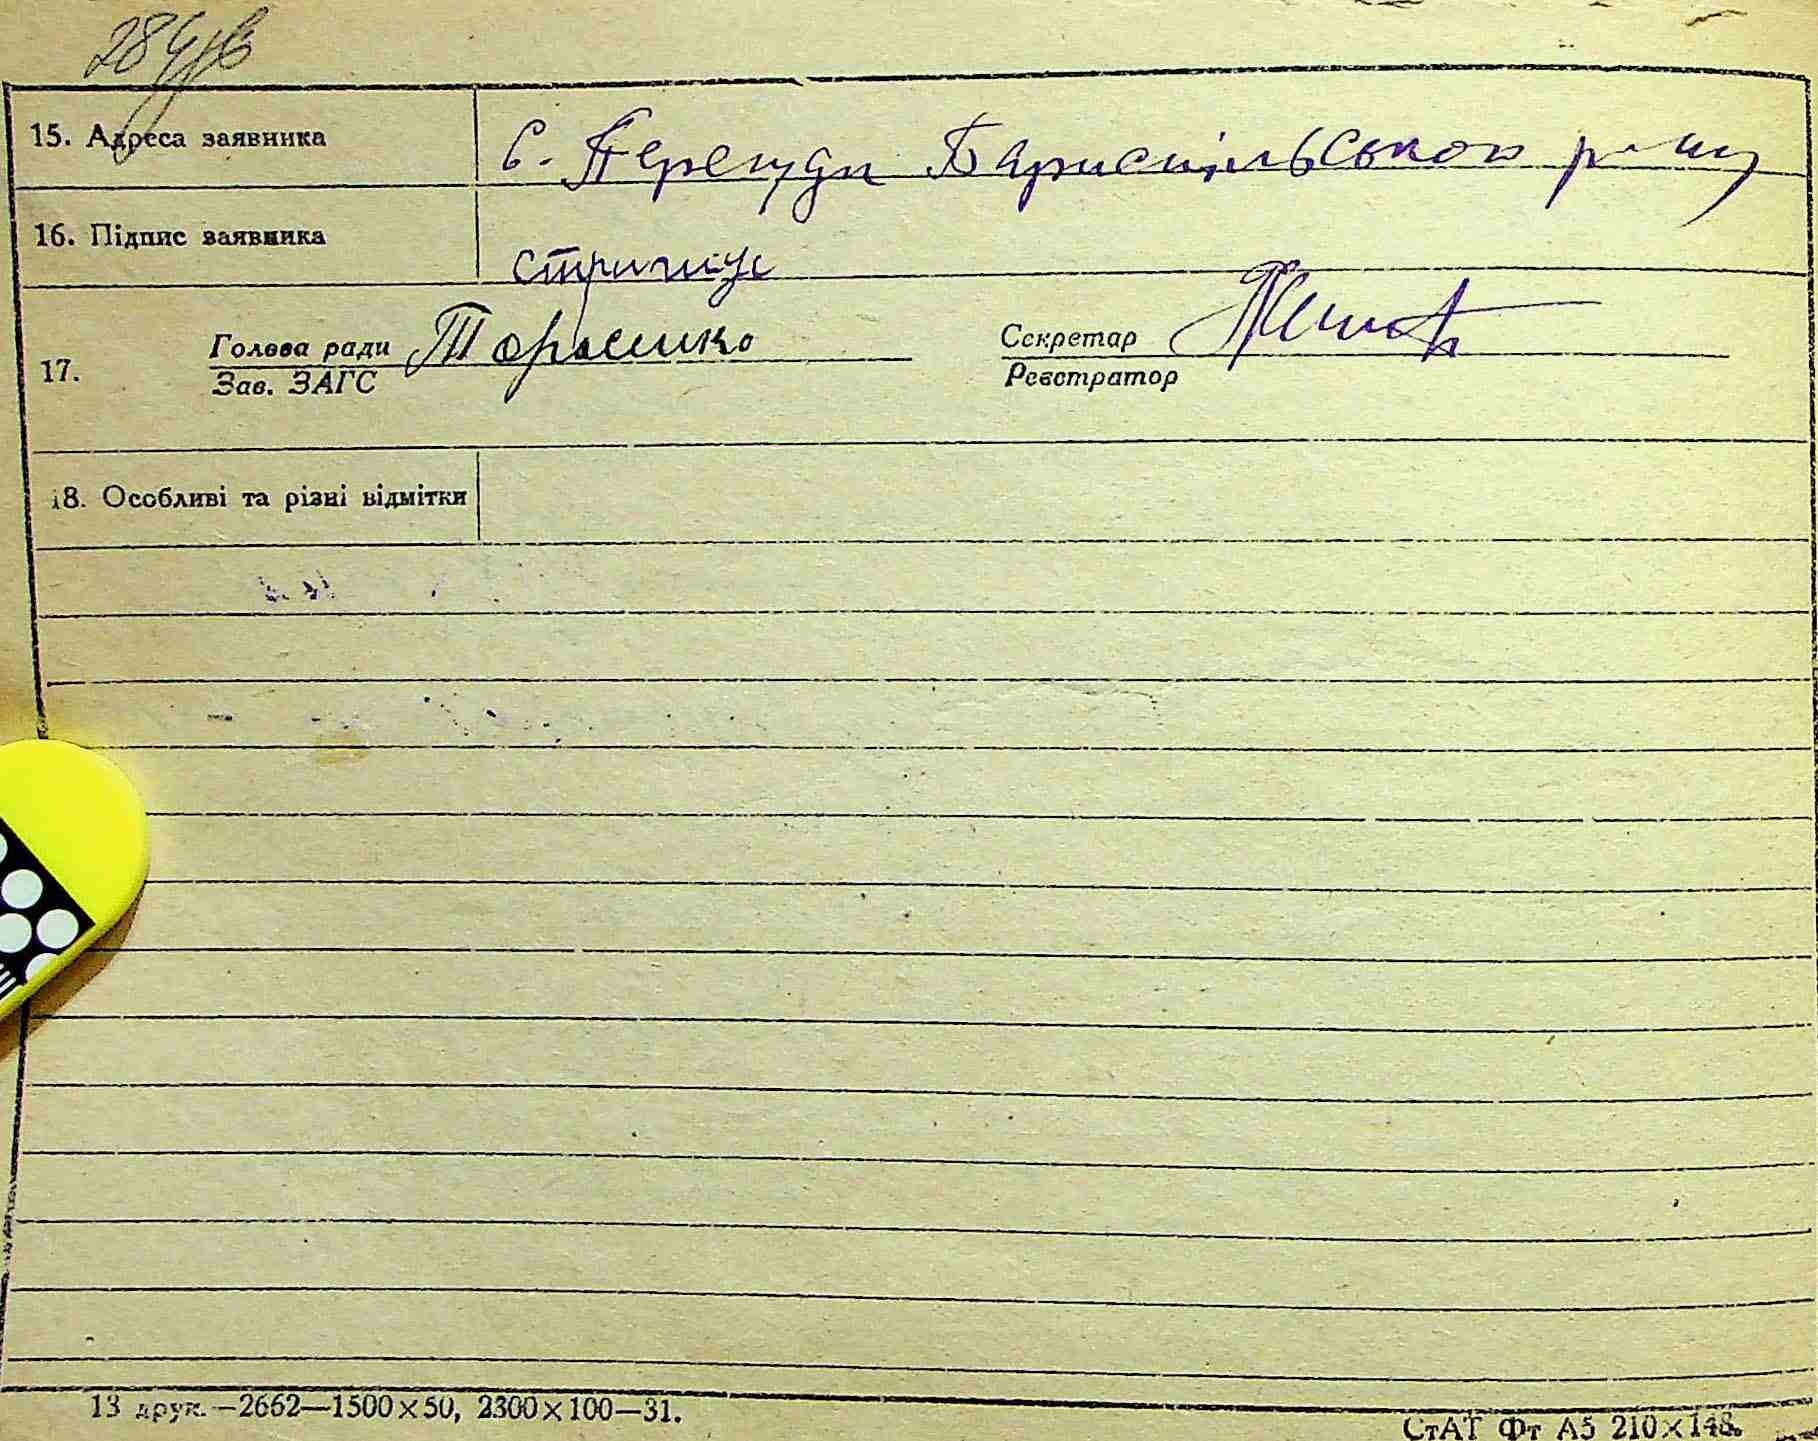 284
15. Адреса заявника
с. Перегуди Бариспільського р-ну
16. Підпис заявника
17. Голова ради Тарасенко Секретар
Зав. ЗАГС Реєстратор
18. Особливі та різні відмітки
13 друк.—2662—1500×50, 2300×100—31.
СтАТ Фт А5 210×148.